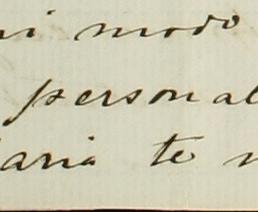 ni modo
personal
aria te